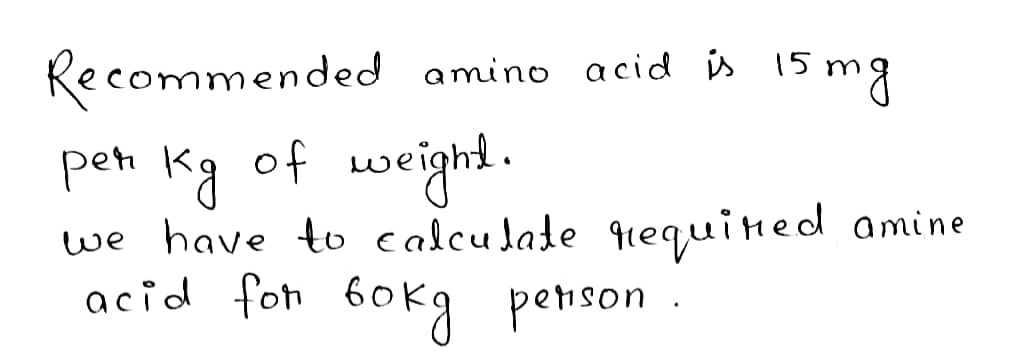 Recommended amino acid is 15 mg
per kg of weight.
we have to calculate required amine
acid for 60kg person.